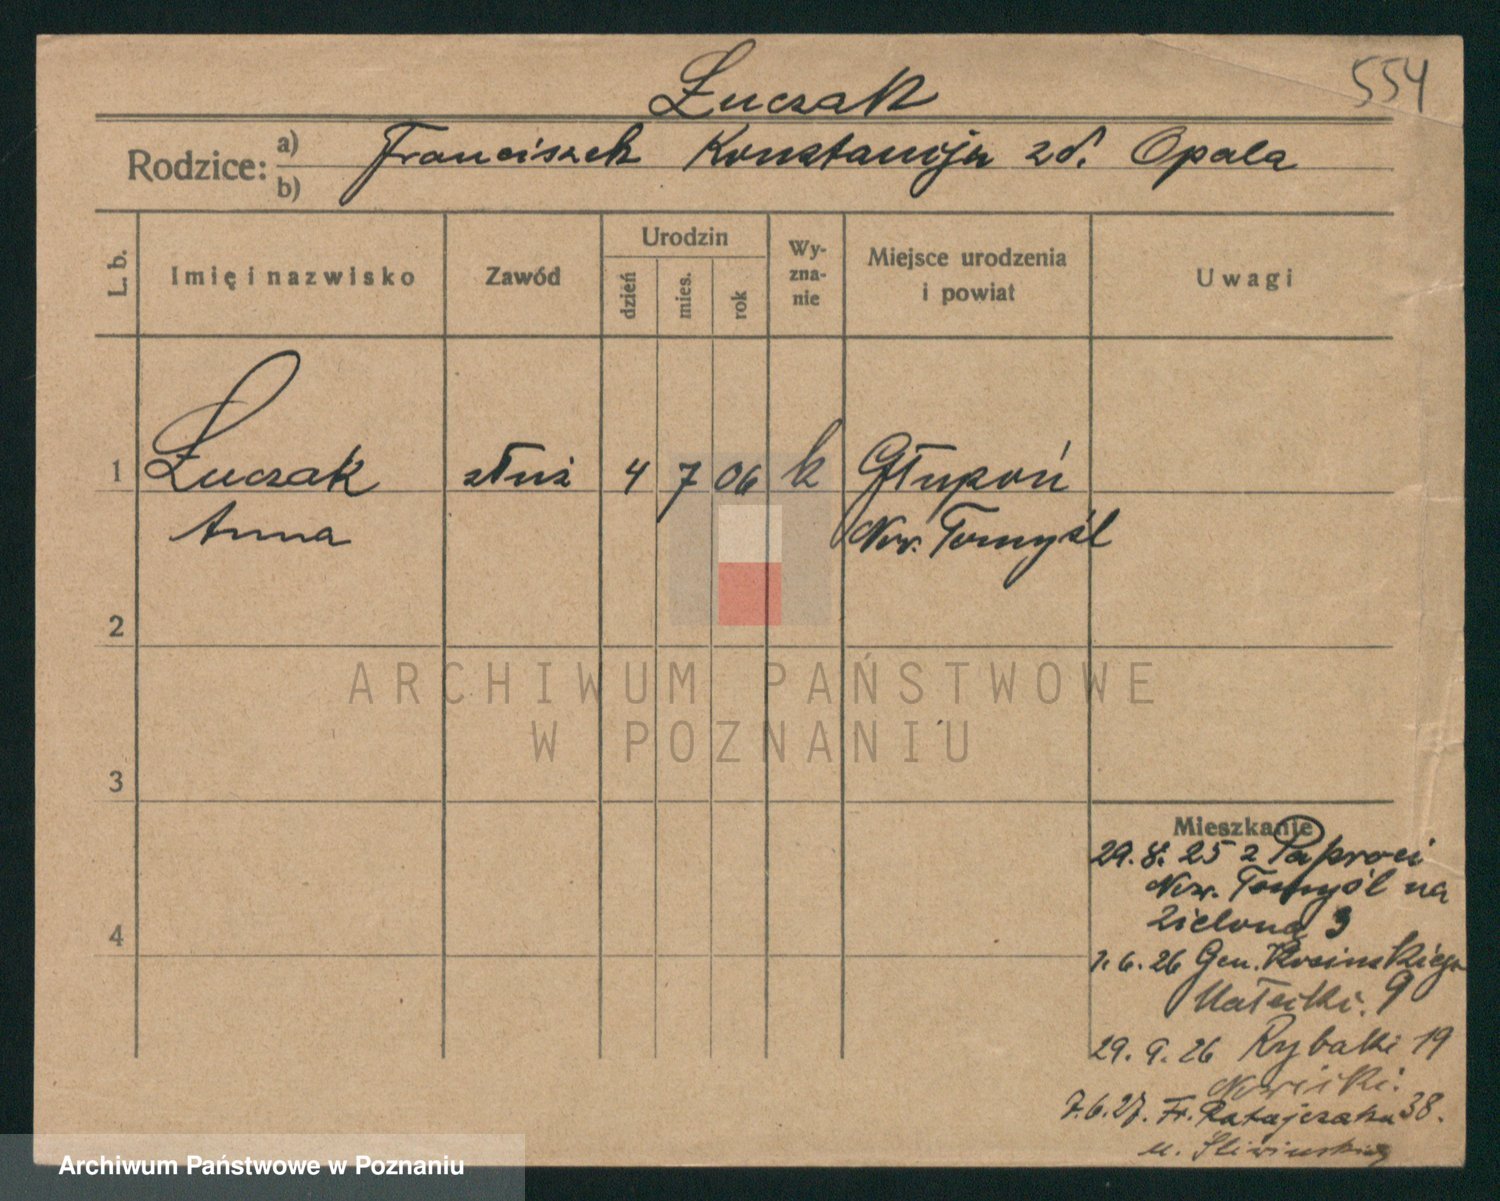 554
Łuczak
Rodzice: a) b) Franciszek Konstancja zd. Opala
L. b. Imię i nazwisko Zawód Urodzin dzień mies. rok Wy-zna-nie Miejsce urodzenia i powiat Uwagi
1 Łuczak służ 4 7 06 k Głupoń
Anna Now. Tomyśl
2
3
4
Mieszkanie
29.8.25 z Paproci
Now. Tomyśl na
Zielona 3
1.6.26 Gen. Kosińskiego 9
29.9.26 Rybaki 19
7.6.27. Fr. Ratajczaka 38.
u.
ARCHIWUM PAŃSTWOWE
W POZNANIU
Archiwum Państwowe w Poznaniu